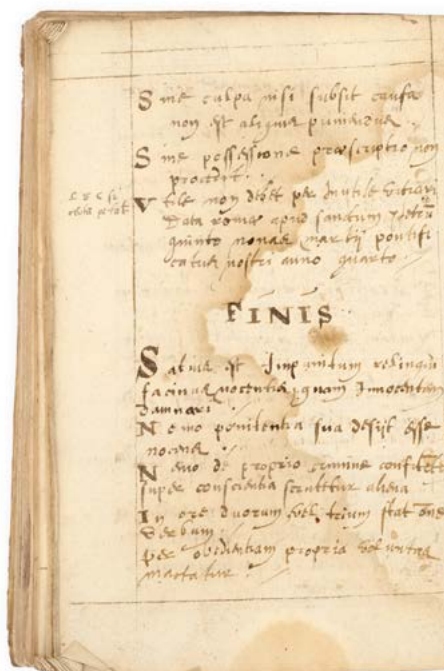 Sine culpa nisi subsit causa
non est aliquis puniendus.
Sine possessione prescriptio non
procedit.
Vtile non debet per Inutile vitiari
Data rome apud sanctum petrū
quinto nonas martij pontifi
catus nostri anno quarto.
FINIS
Satius est Impunitum relinqui
facinus nocentis, quam Innocentem
damnari.
Nemo penitentia sua desijt esse
nocens.
Nemo de proprio crimine confitēte
super conscientia scrutetur aliena
In ore duorum vel trium stat omē
verbum.
per obidientiam propria voluntas
mactatur.